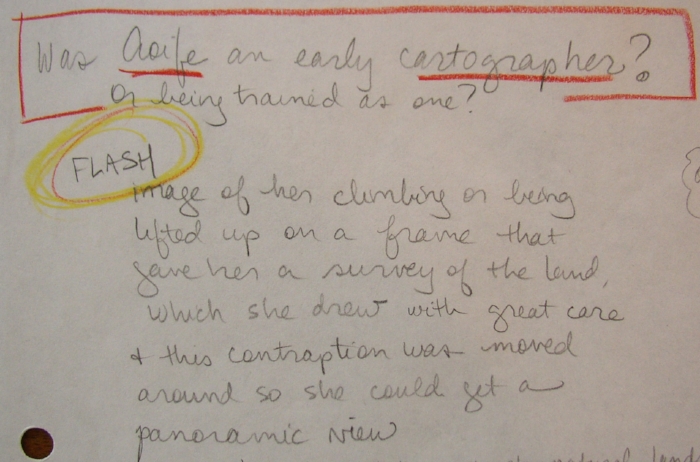 Was Aoife an early cartographer?
or being trained as one?
FLASH
image of her climbing or being
lifted up on a frame that
gave her a survey of the land,
which she drew with great care
& this contraption was moved
around so she could get a
panoramic view